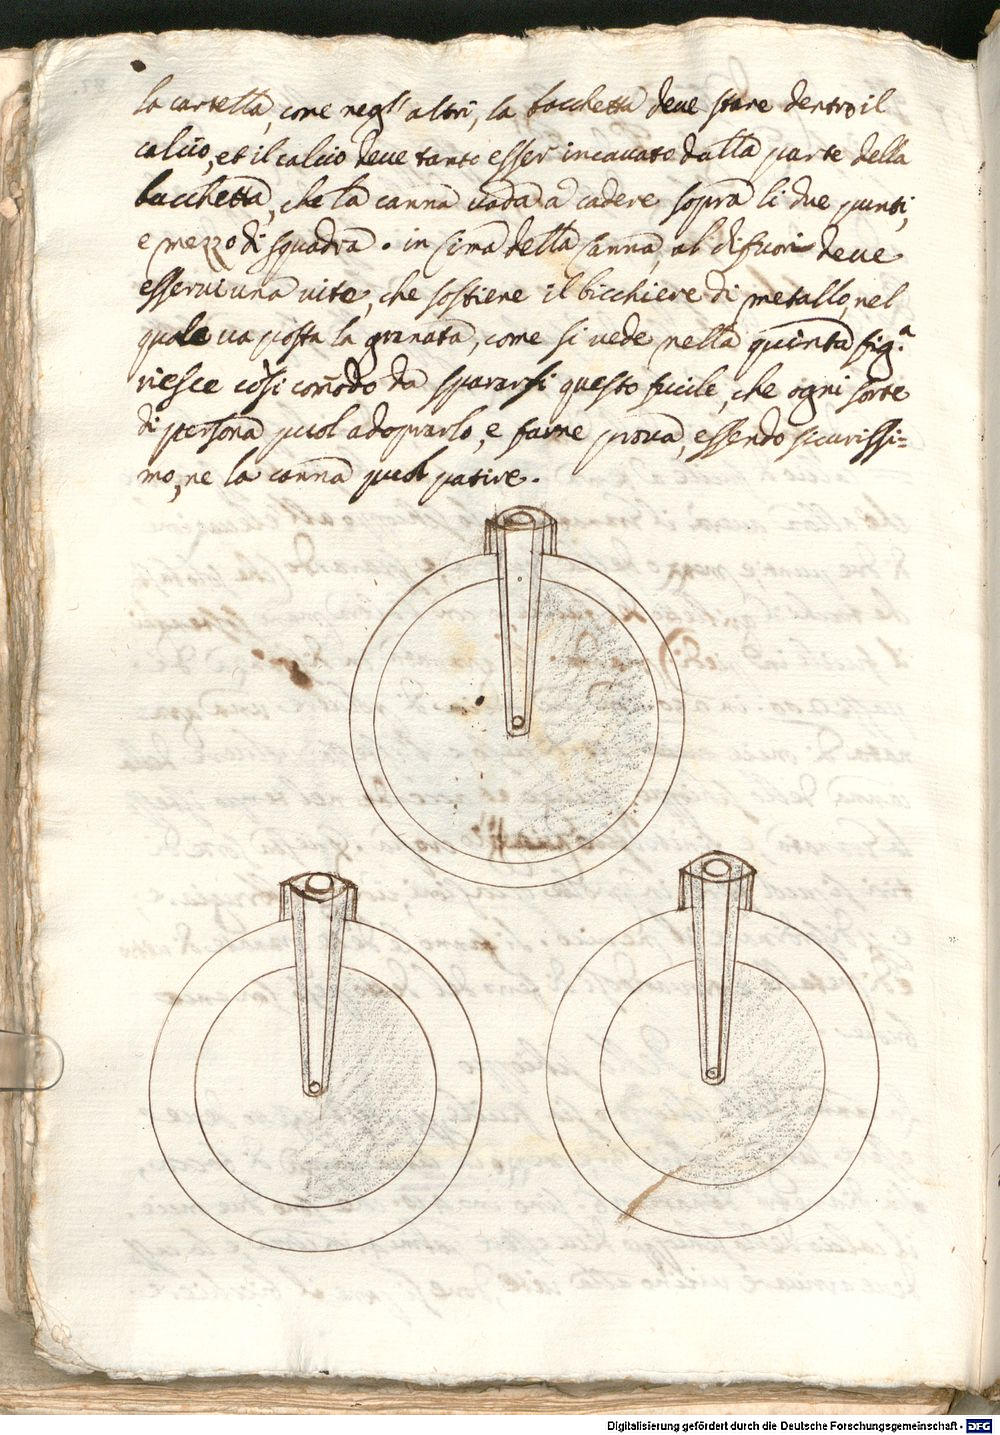 la cartella, come negl'altri, la bacchetta deve stare dentro il
calcio, et il calcio deve tanto esser incavato dalla parte della
bacchetta, che la canna vada à cadere sopra li due punti,
e mezzo di squadra. in cima della canna, al difuori deve
esservi una vite, che sostiene il bicchiere di metallo, nel
quale va posta la granata, come si vede nella quinta fig.ª
riesce così comodo da spararsi questo fucile, che ogni sorte
di persona puol adoprarlo, e farne prova, essendo sicurissi=
mo, ne la canna puol patire.
Digitalisierung gefördert durch die Deutsche Forschungsgemeinschaft - DFG